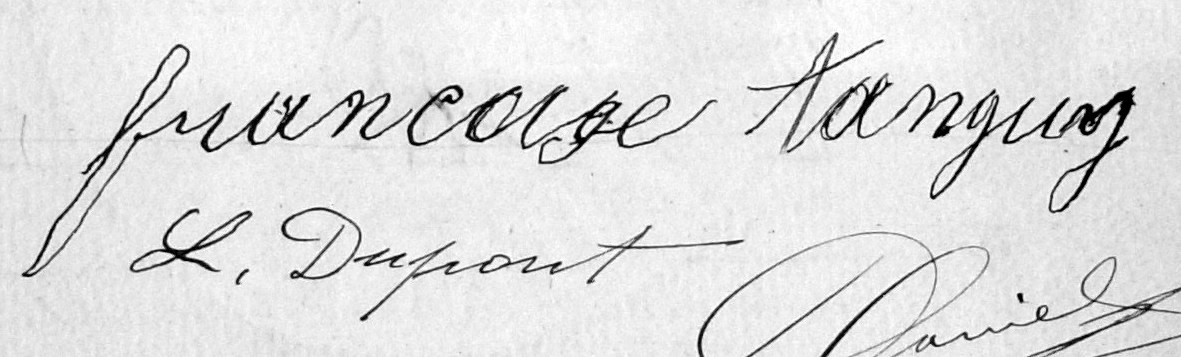 francoise tanguy
L. Dupont
Daniel